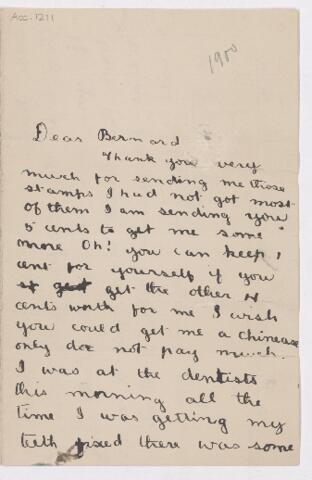 Acc. 1211
1900
Dear Bernard
Thank you very
much for sending me those
stamps I had not got most
of them I am sending you
5 cents to get me some
more Oh! you can keep 1
cent for yourself if you
get the other 4
cents worth for me I wish
you could get me a Chinease
only do not pay much.
I was at the dentists
this morning all the
time I was getting my
teeth fixed there was some